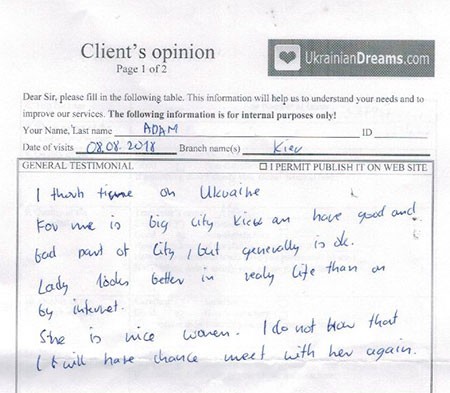 Client's opinion
Page 1 of 2
UkrainianDreams.com
Dear Sir, please fill in the following table. This information will help us to understand your needs and to
improve our services. The following information is for internal purposes only!
Your Name, Last name ADAM ID
Date of visits 08.08.2018 Branch name(s) Kiev
GENERAL TESTIMONIAL ☐ I PERMIT PUBLISH IT ON WEB SITE
I on Ukraine
For me is big city Kiev an have good and
bad part of City, but generally is ok.
Lady looks better in realy life than on
by internet.
She is nice women. I do not know that
I will have chance meet with her again.